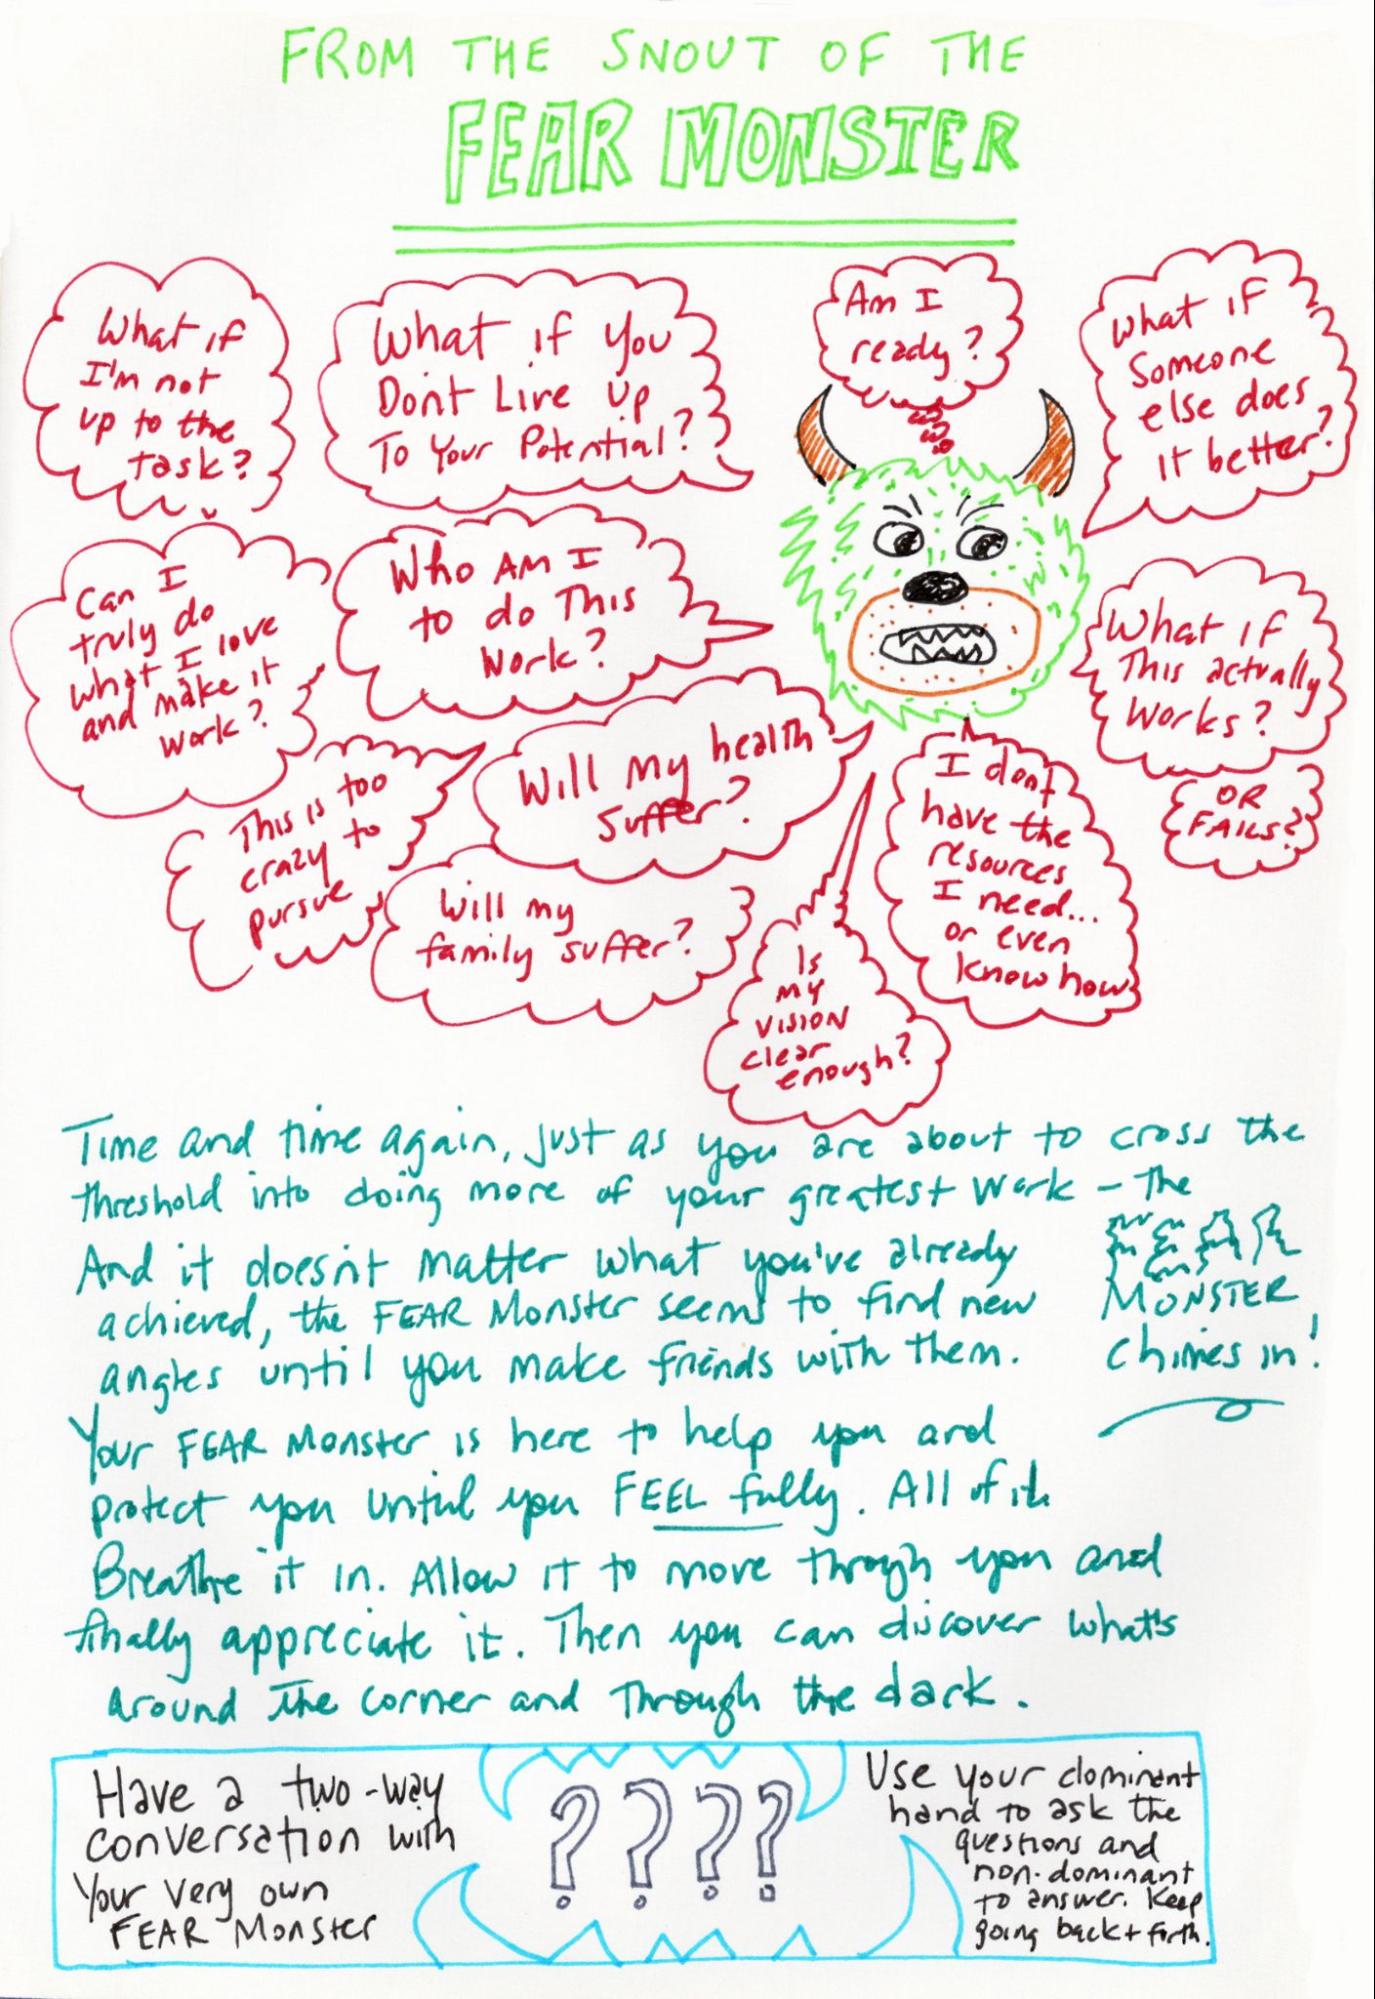 FROM THE SNOUT OF THE
FEAR MONSTER
What if
I'm not
up to the
task?
What if You
Don't Live Up
To Your Potential?
Am I
ready?
What if
Someone
else does
it better?
Can I
truly do
what I love
and make it
work?
Who Am I
to do This
Work?
What if
This actually
Works?
OR
FAILS?
This is too
crazy to
pursue
Will my health
suffer?
Will my
family suffer?
Is
my
vision
clear
enough?
I don't
have the
resources
I need...
or even
know how
Time and time again, just as you are about to cross the
threshold into doing more of your greatest work – The
FEAR
MONSTER
chimes in!
And it doesn't matter what you've already
achieved, the FEAR Monster seems to find new
angles until you make friends with them.
Your FEAR Monster is here to help you and
protect you until you FEEL fully. All of it.
Breathe it in. Allow it to move through you and
finally appreciate it. Then you can discover what's
around the corner and through the dark.
Have a two-way
conversation with
Your very own
FEAR Monster
????
Use your dominant
hand to ask the
questions and
non-dominant
to answer. Keep
going back + forth.